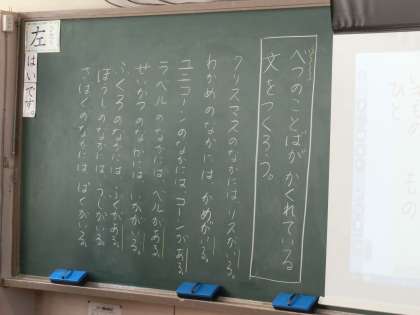 べつのことばが かくれている
文をつくろう。
クリスマスのなかには、リスがいる。
わかめのなかには、かめがいる。
ユニコーンのなかには、コーンがある。
ラベルのなかには、ベルがある。
せいかつのなかには、いかがいる。
ふくろのなかには、ふくがある。
ぼうしのなかには、うしがいる。
さばくのなかには、ばくがいる。
左
はい
です。